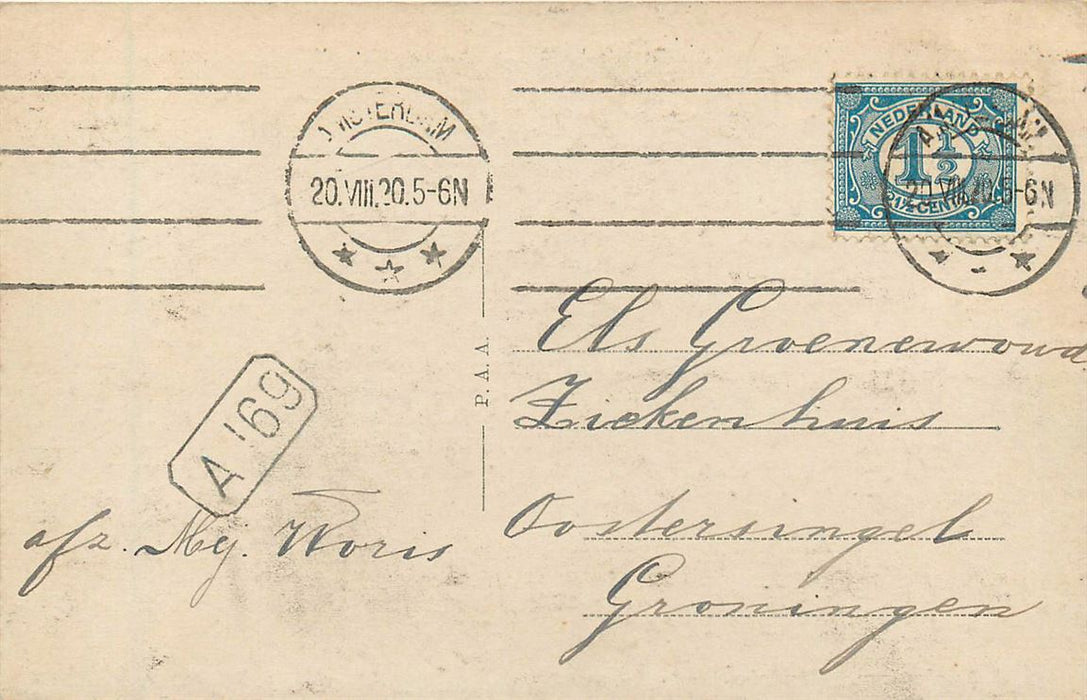 AMSTERDAM
20.VIII.20.5-6N
NEDERLAND
1½
1½ CENT
20.VIII.20.5-6N
P.A.A.
A'69
Els Groenewoud
Ziekenhuis
Oostersingel
Groningen
afz. Mej. Woris